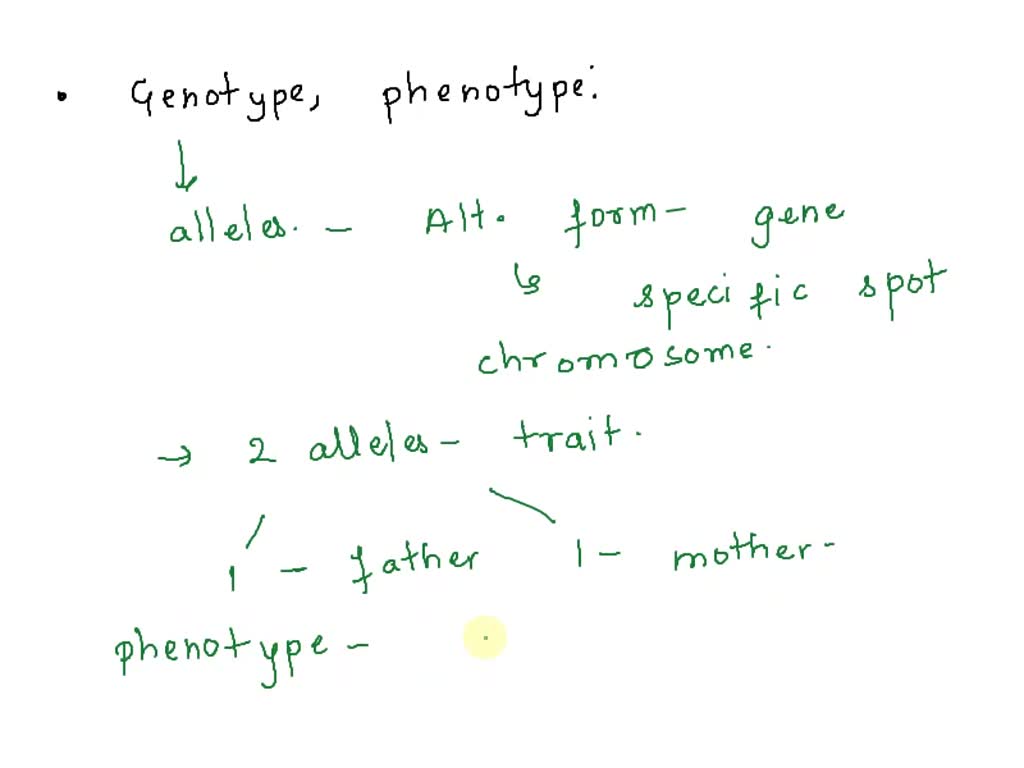 • Genotype, phenotype:
↓
alleles. - Alt. form - gene
↳ specific spot
chromosome.
→ 2 alleles - trait.
1 - father 1 - mother -
phenotype -